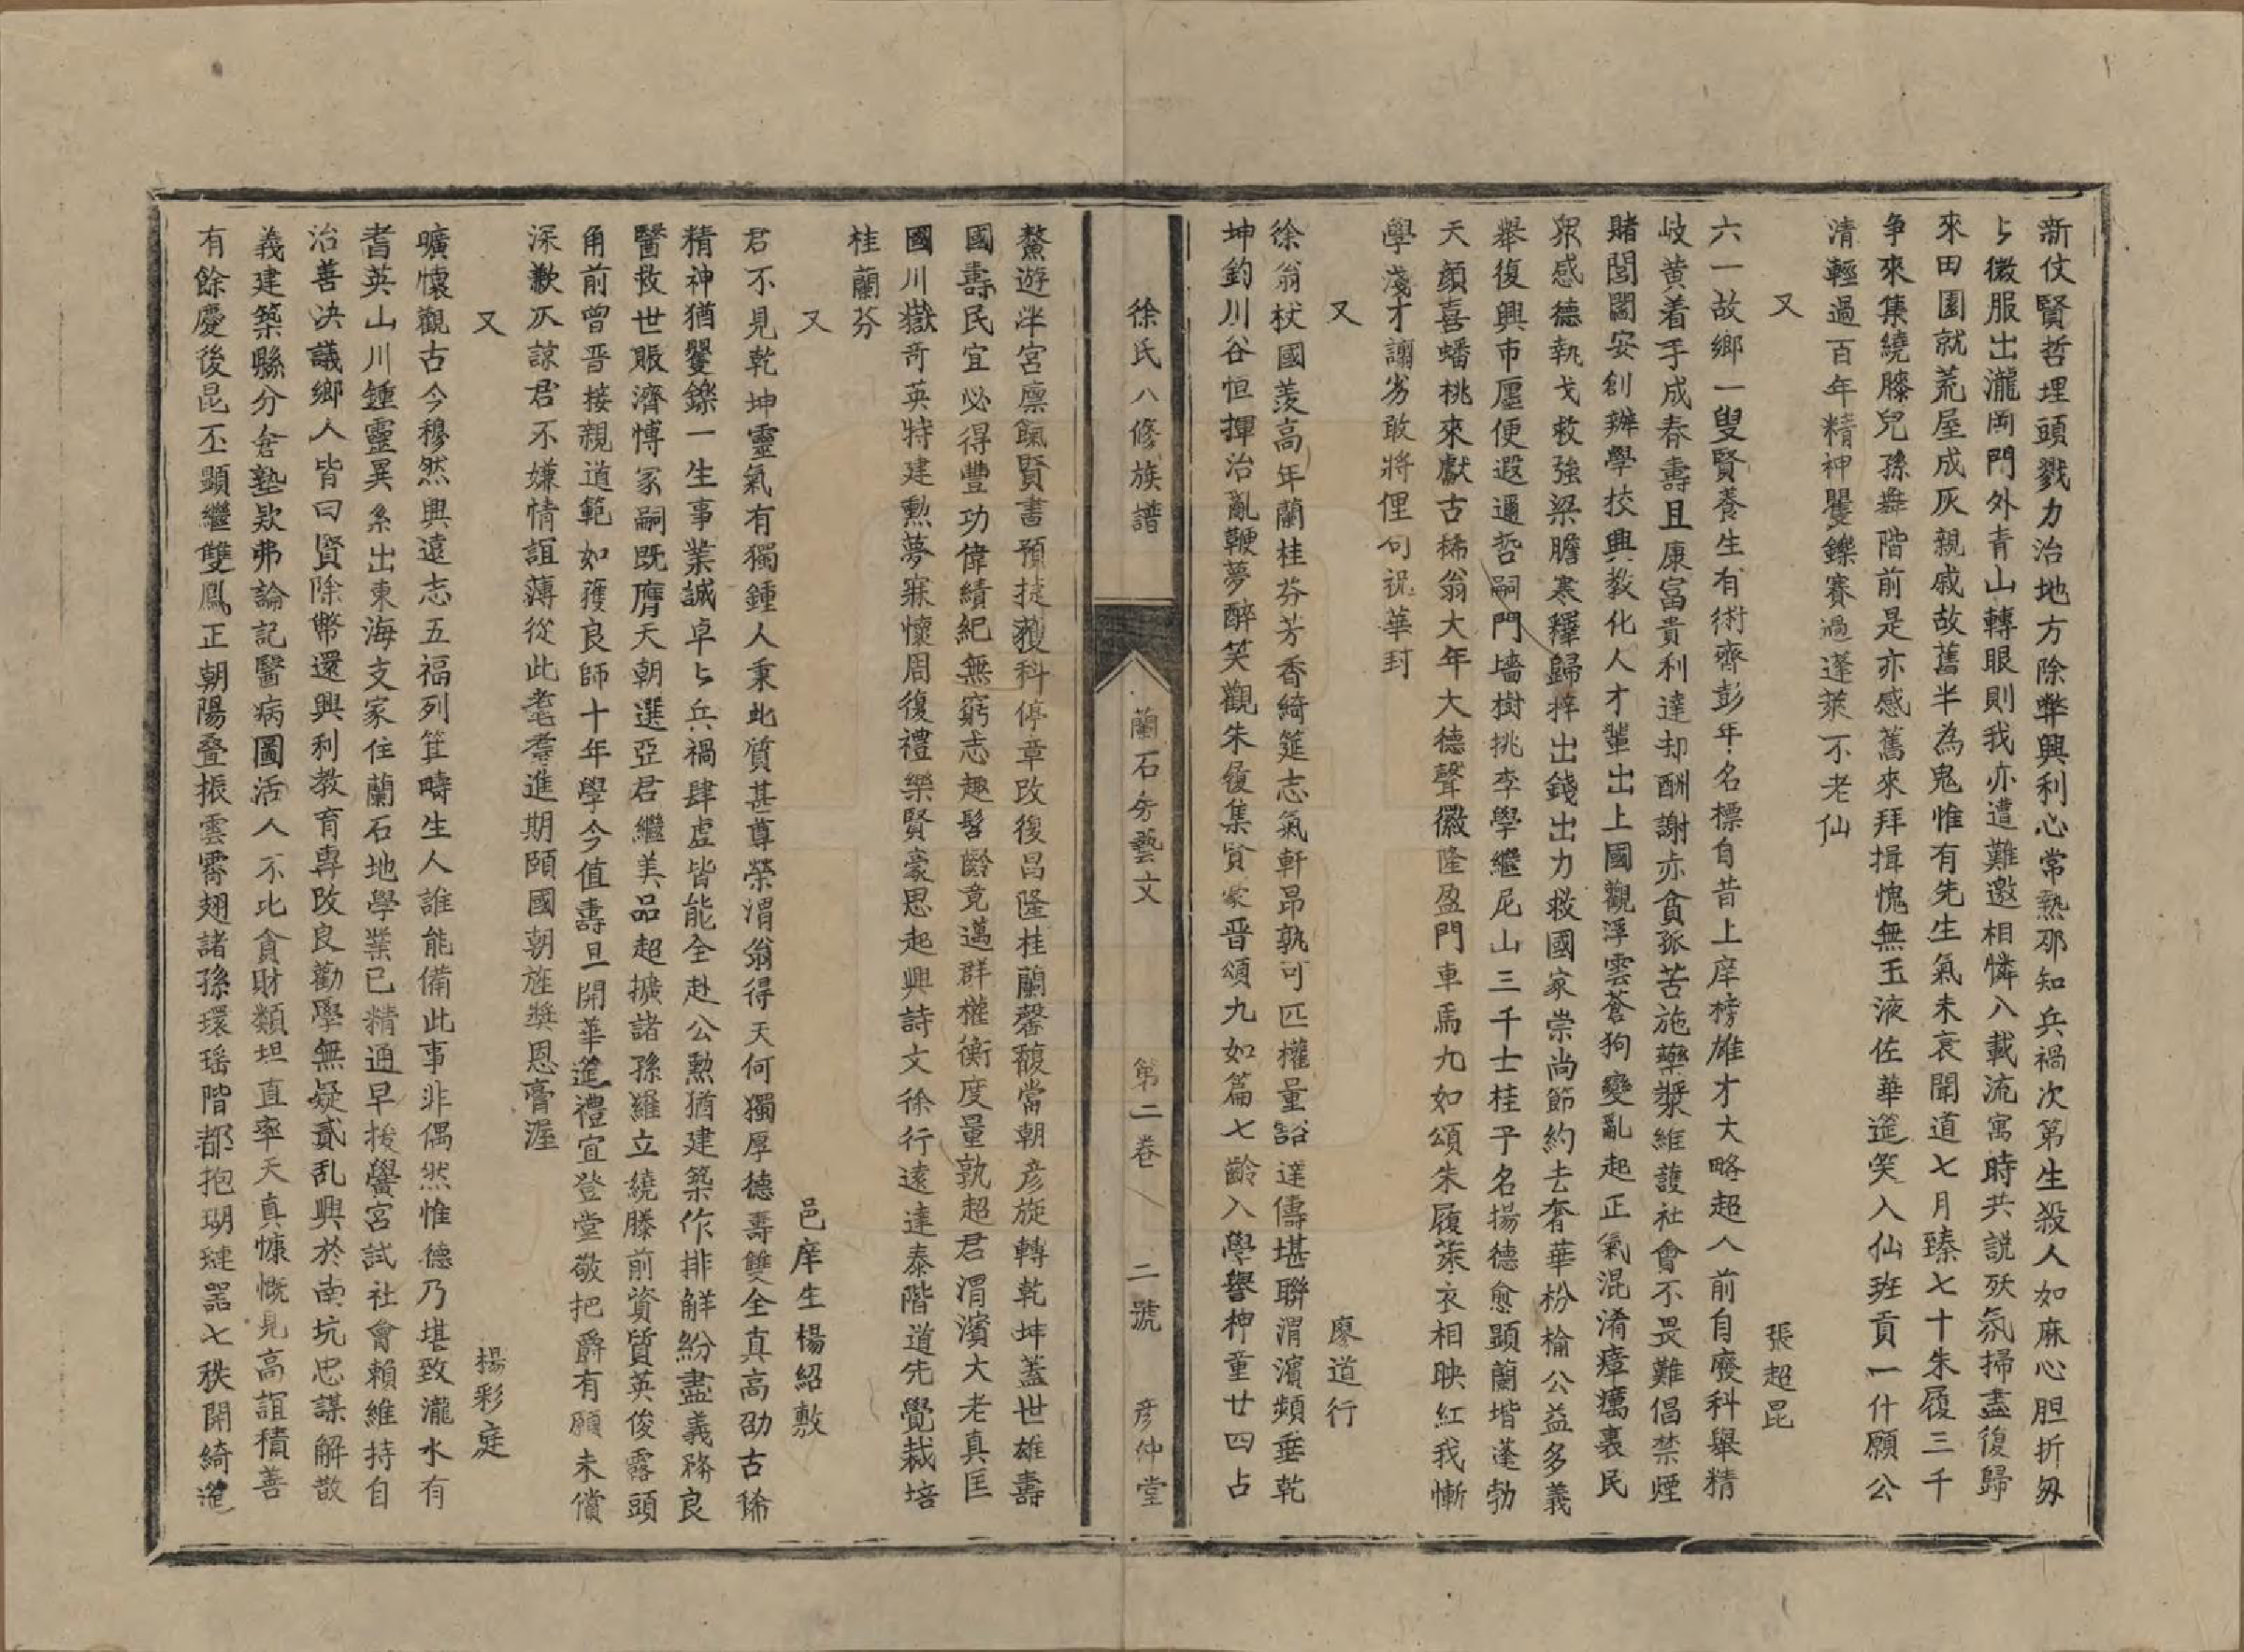 新仗賢哲埋頭戮力治地方除弊興利心常熱那知兵禍次第生殺人如麻心胆折匆
匆微服出瀧岡門外青山轉眼則我亦遭難邀相憐入載流寓時共説殀氛掃盡復歸
來田園就荒屋成灰親戚故舊半為鬼惟有先生氣未衰聞道七月臻七十朱履三千
爭來集繞膝兒孫舞階前是亦感舊來拜揖愧無玉液佐華筵笑入仙班貢一什願公
清輕過百年精神矍鑠賽過蓬萊不老仙
又 張超昆
六一故鄉一叟賢養生有術齊彭年名標自昔上庠榜雄才大略超人前自廢科舉精
岐黄着手成春壽且康富貴利達却酬謝赤貧孤苦施藥漿維護社會不畏難倡禁煙
賭閭閻安創辦學技興教化人才輩出上國觀浮雲蒼狗變亂起正氣混淆瘴癘裹民
眾感德執戈救強梁膽寒釋歸捽出錢出力救國家崇尚節約去奢華枌榆公益多義
舉復興市廛便遐邇哲嗣門墻樹桃李學繼尼山三千士桂子名揚德愈顯蘭堦蓬勃
天顔喜蟠桃來獻古稀翁大年大德聲徽隆盈門車馬九如頌朱履萊衣相映紅我慚
學淺才譾劣敢將俚句祝華封
又 廖道行
徐翁杖國羨高年蘭桂芬芳香綺筵志氣軒昂孰可匹權量豁達儔堪聯渭濱頻垂乾
坤釣川谷恒揮治亂鞭夢醉笑觀朱履集賢豪晋頌九如篇七齡入學譽神童廿四占
徐氏八修族譜 蘭石房藝文 第二卷 二號 彦仲堂
鰲遊泮宮廪餼賢書預捷䕶科停章改復昌隆桂蘭馨馥當朝彦旋轉乾坤蓋世雄壽
國壽民宜必得豐功偉績紀無窮志趣髫齡竟邁群權衡度量孰超君渭濱大老真匡
國川嶽竒英特建勲夢寐懷周復禮樂賢豪思起興詩文徐行遠達泰階道先覺栽培
桂蘭芬
又 邑庠生楊紹敷
君不見乾坤靈氣有獨鍾人秉此質甚尊榮渭翁得天何獨厚德壽雙全真高劭古稀
精神猶矍鑠一生事業誠卓卓兵禍肆虐皆能全赴公勲猶建築作排解紛盡義務良
醫救世賑濟慱冢嗣既膺天朝選亞君繼美品超擴諸孫羅立繞膝前資質英俊露頭
角前曾晋接親道範如獲良師十年學今值壽旦開華筵禮宜登堂敬把爵有願未償
深歉仄諒君不嫌情誼薄從此耄耋進期頤國朝旌獎恩膏渥
又 揚彩庭
曠懷觀古今穆然興遠志五福列箕疇生人誰能備此事非偶然惟德乃堪致瀧水有
耆英山川鍾靈異系出東海支家住蘭石地學業已精通早拔黌宮試社會賴維持自
治善決議鄉人皆曰賢除幣還興利教育専改良勸學無疑貳乱興於南坑忠謀解散
義建築縣分倉墊欵弗論記醫病圖活人不比貪財類坦直率天真慷慨見高誼積善
有餘慶後昆丕顯繼雙鳳正朝陽叠振雲霄翅諸孫環瑶階都抱瑚璉器七秩開綺筵